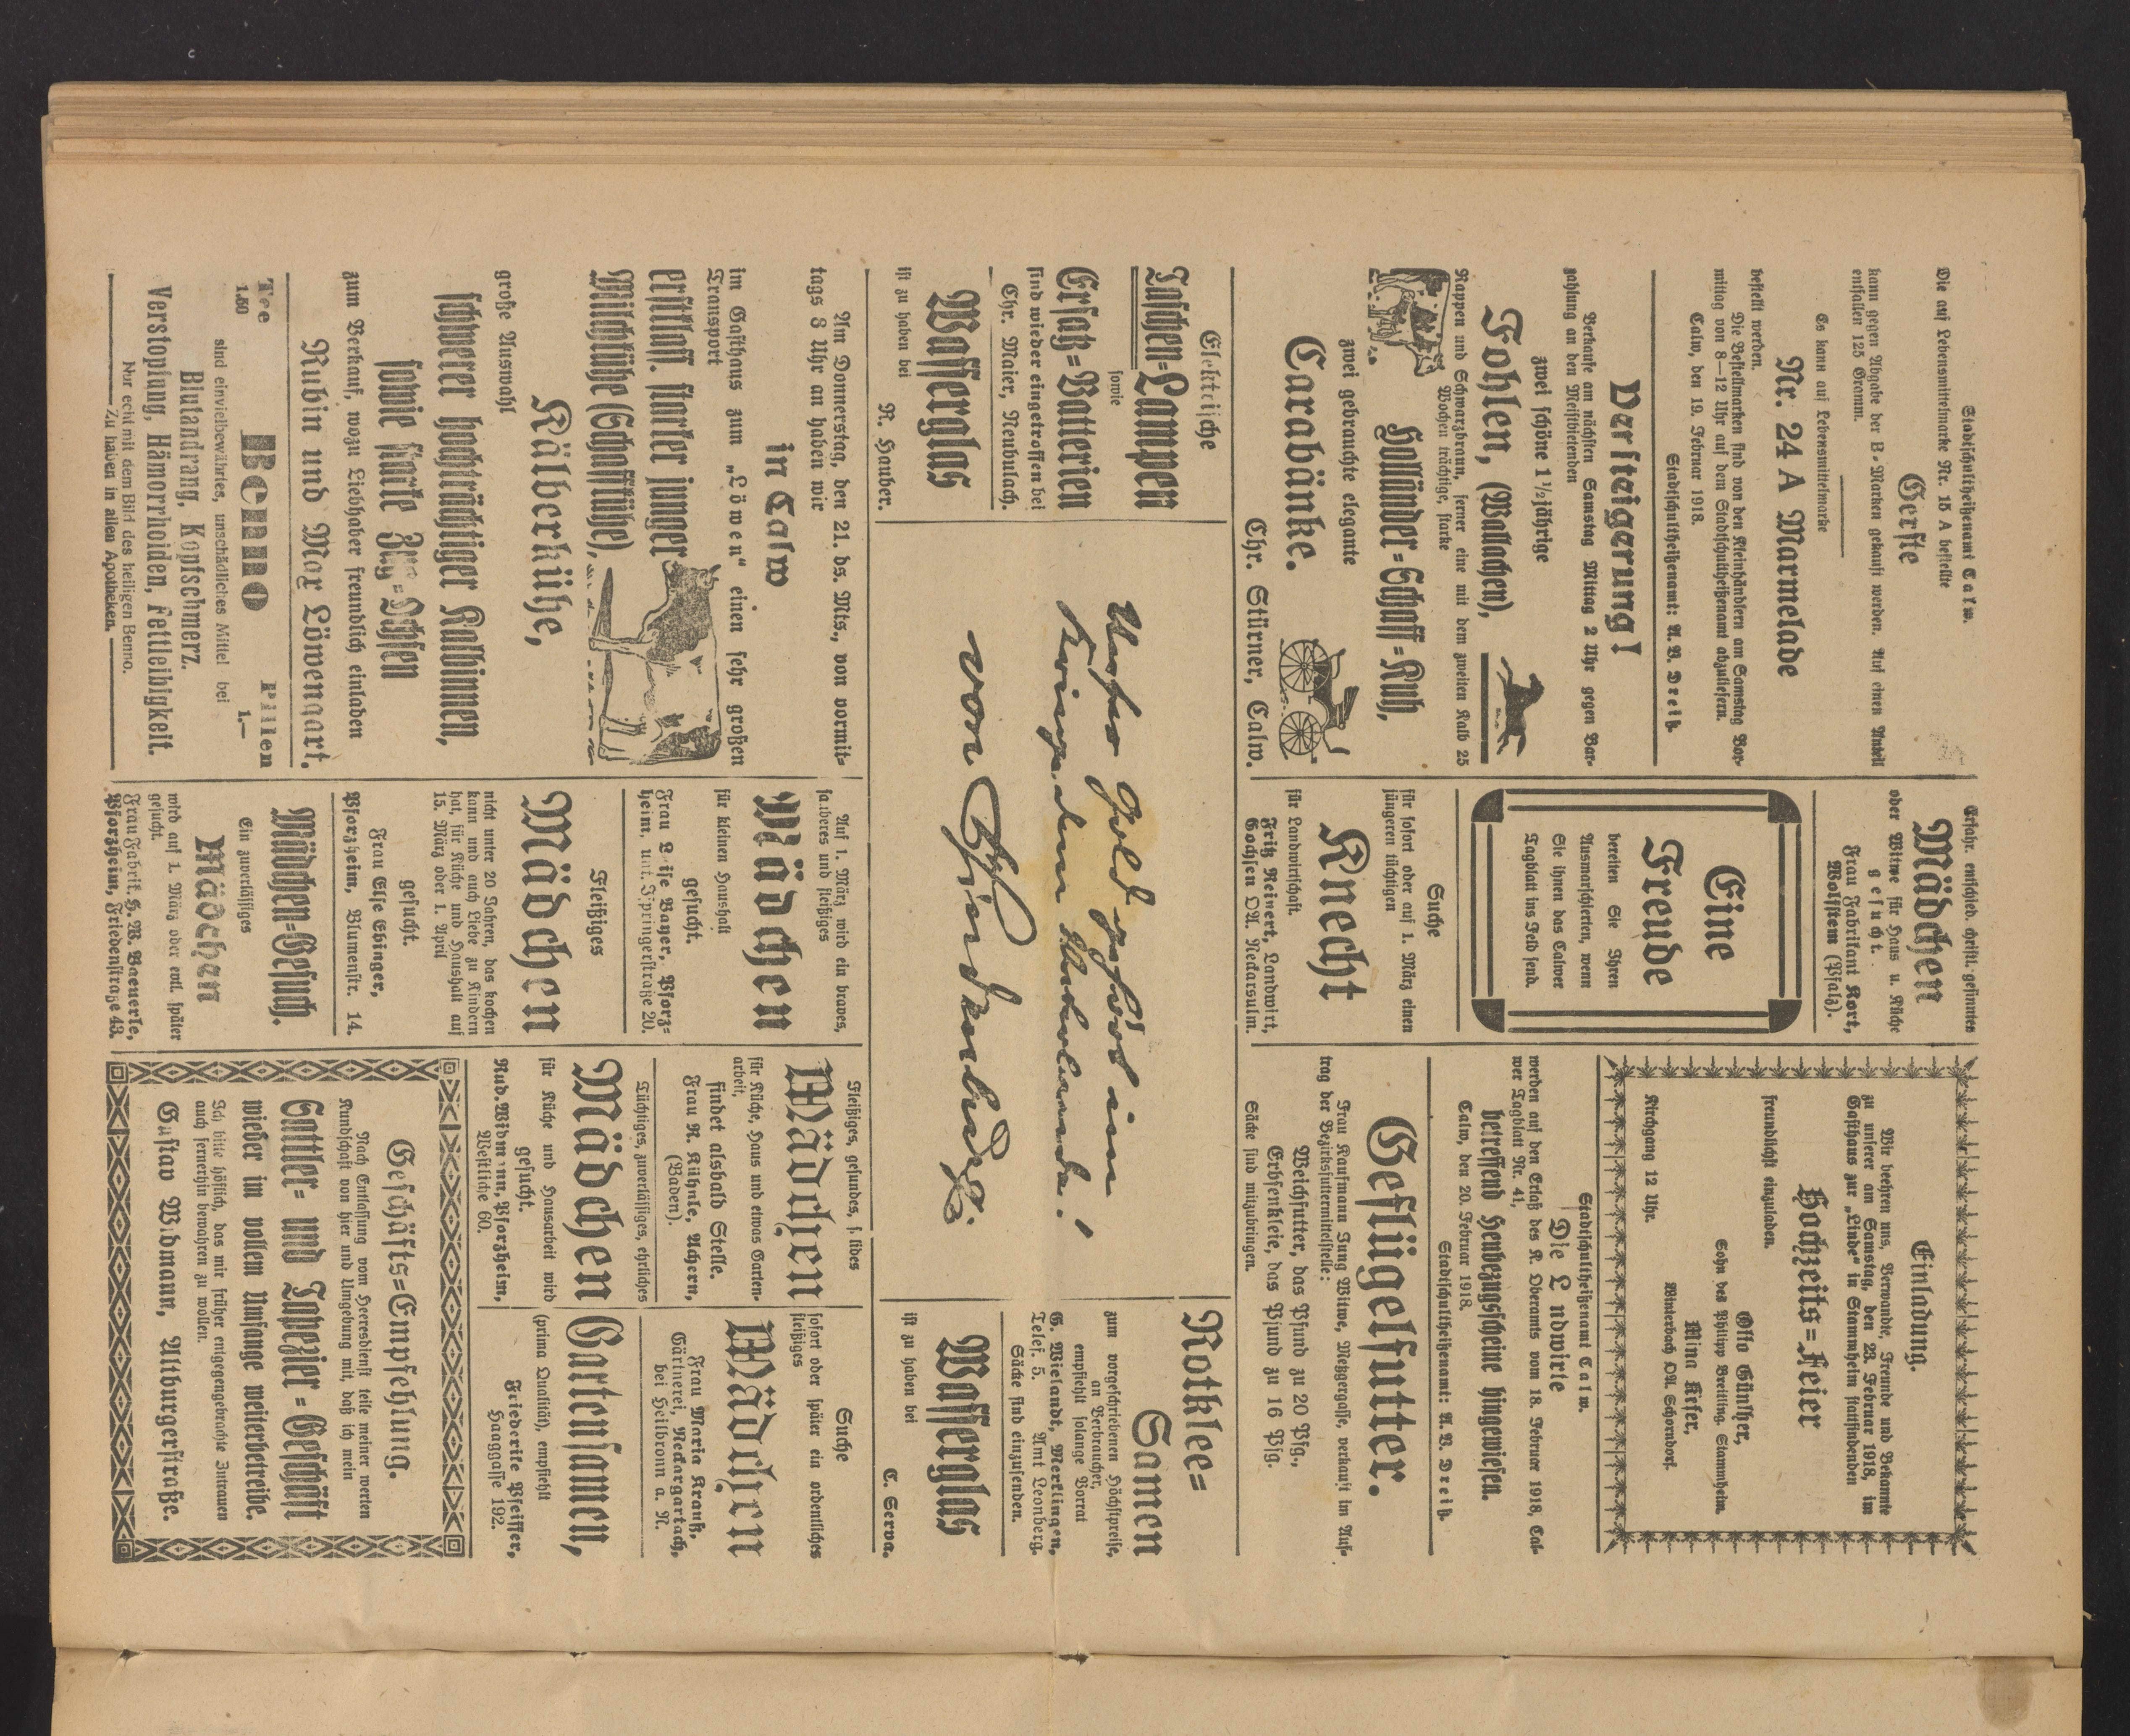 Stadtschultheißenamt Calw.
Die auf Lebensmittelmarke Nr. 15 A bestellte
Gerste
kann gegen Abgabe der B-Marken gekauft werden. Auf einen Anteil
entfallen 125 Gramm.
Es kann auf Lebensmittelmarke
Nr. 24 A Marmelade
bestellt werden.
Die Bestellmarken sind von den Kleinhändlern am Samstag Vor-
mittag von 8—12 Uhr auf dem Stadtschultheißenamt abzuliefern.
Calw, den 19. Februar 1918.
Stadtschultheißenamt: A. V. Dreiß.
Versteigerung!
Verkaufe am nächsten Samstag Mittag 2 Uhr gegen Bar-
zahlung an den Meistbietenden
zwei schöne 1½jährige
Fohlen, (Wallachen),
Rappen und Schwarzbraun, ferner eine mit dem zweiten Kalb 25
Wochen trächtige, starke
Holländer-Schaff-Kuh,
zwei gebrauchte elegante
Carabänke.
Chr. Stürner, Calw.
Erfahr. entschied. christl. gesinntes
Mädchen
oder Witwe für Haus u. Küche
gesucht.
Frau Fabrikant Kort,
Wolfstein (Pfalz).
Eine
Freude
bereiten Sie Ihren
Ausmarschierten, wenn
Sie ihnen das Calwer
Tagblatt ins Feld send.
Suche
für sofort oder auf 1. März einen
jüngeren tüchtigen
Knecht
für Landwirtschaft.
Fritz Reinert, Landwirt,
Gochsen OA. Neckarsulm.
Einladung.
Wir beehren uns, Verwandte, Freunde und Bekannte
zu unserer am Samstag, den 23. Februar 1918, im
Gasthaus zur „Linde" in Stammheim stattfindenden
Hochzeits-Feier
freundlichst einzuladen.
Otto Günther,
Sohn des Philipp Breitling, Stammheim.
Mina Kiefer,
Winterbach OA. Schorndorf.
Kirchgang 12 Uhr.
Stadtschultheißenamt Calw.
Die L ndwirte
werden auf den Erlaß des K. Oberamts vom 18. Februar 1918, Cal-
wer Tagblatt Nr. 41,
betreffend Heubezugscheine hingewiesen.
Calw, den 20. Februar 1918.
Stadtschultheißenamt: A. V. Dreiß.
Geflügelfutter.
Frau Kaufmann Jung Witwe, Metzgergasse, verkauft im Auf-
trag der Bezirksfuttermittelstelle:
Weichfutter, das Pfund zu 20 Pfg.,
Erbsenkleie, das Pfund zu 16 Pfg.
Säcke sind mitzubringen.
Elektrische
Taschen-Lampen
sowie
Ersatz-Batterien
sind wieder eingetroffen bei
Chr. Maier, Neubulach.
Wasserglas
ist zu haben bei
R. Hauber.
Unser Geld gehört im
Kriege dem Vaterlande!
von Hindenburg.
Rotklee-
Samen
zum vorgeschriebenen Höchstpreise,
an Verbraucher,
empfiehlt solange Vorrat
G. Wielandt, Merklingen,
Telef. 5. Amt Leonberg.
Säcke sind einzusenden.
Wasserglas
ist zu haben bei
C. Serva.
Am Donnerstag, den 21. ds. Mts., von vormit-
tags 8 Uhr an haben wir
in Calw
im Gasthaus zum „Löwen" einen sehr großen
Transport
erstklass. starker junger
Milchkühe (Schaffkühe),
Kälberkühe,
große Auswahl
schwerer hochträchtiger Kalbinnen,
sowie starke Zug-Ochsen
zum Verkauf, wozu Liebhaber freundlich einladen
Rubin und Max Löwengart.
Tee
1.50
Benno
Pillen
1.—
sind einvielbewährtes, unschädliches Mittel bei
Blutandrang, Kopfschmerz.
Verstopfung, Hämorrhoiden, Fettleibigkeit.
Nur echt mit dem Bild des heiligen Benno.
Zu haben in allen Apotheken.
Auf 1. März wird ein braves,
sauberes und fleißiges
Mädchen
für kleinen Haushalt
gesucht.
Frau Luise Bayer, Pforz-
heim, unt. Ispringerstraße 20.
Fleißiges
Mädchen
nicht unter 20 Jahren, das kochen
kann und auch Liebe zu Kindern
hat, für Küche und Haushalt auf
15. März oder 1. April
gesucht.
Frau Else Ebinger,
Pforzheim, Blumenstr. 14.
Mädchen-Gesuch.
Ein zuverlässiges
Mädchen
wird auf 1. März oder evtl. später
gesucht.
Frau Fabrik. H. W. Baeuerle,
Pforzheim, Friedenstraße 43.
Fleißiges, gesundes, solides
Mädchen
für Küche, Haus und etwas Garten-
arbeit,
findet alsbald Stelle.
Frau R. Kühnle, Achern,
(Baden).
Tüchtiges, zuverlässiges, ehrliches
Mädchen
für Küche und Hausarbeit wird
gesucht.
Rud. Widmann, Pforzheim,
Westliche 60.
Suche
sofort oder später ein ordentliches
fleißiges
Mädchen
Frau Maria Krauß,
Gärtnerei, Neckargartach,
bei Heilbronn a. N.
Gartensamen,
(prima Qualität), empfiehlt
Friederike Pfeiffer,
Haaggasse 192.
Geschäfts-Empfehlung.
Nach Entlassung vom Heeresdienst teile meiner werten
Kundschaft von hier und Umgebung mit, daß ich mein
Sattler- und Tapezier-Geschäft
wieder im vollem Umfange weiterbetreibe.
Ich bitte höflich, das mir früher entgegengebrachte Zutrauen
auch fernerhin bewahren zu wollen.
Gustav Widmann, Altburgerstraße.